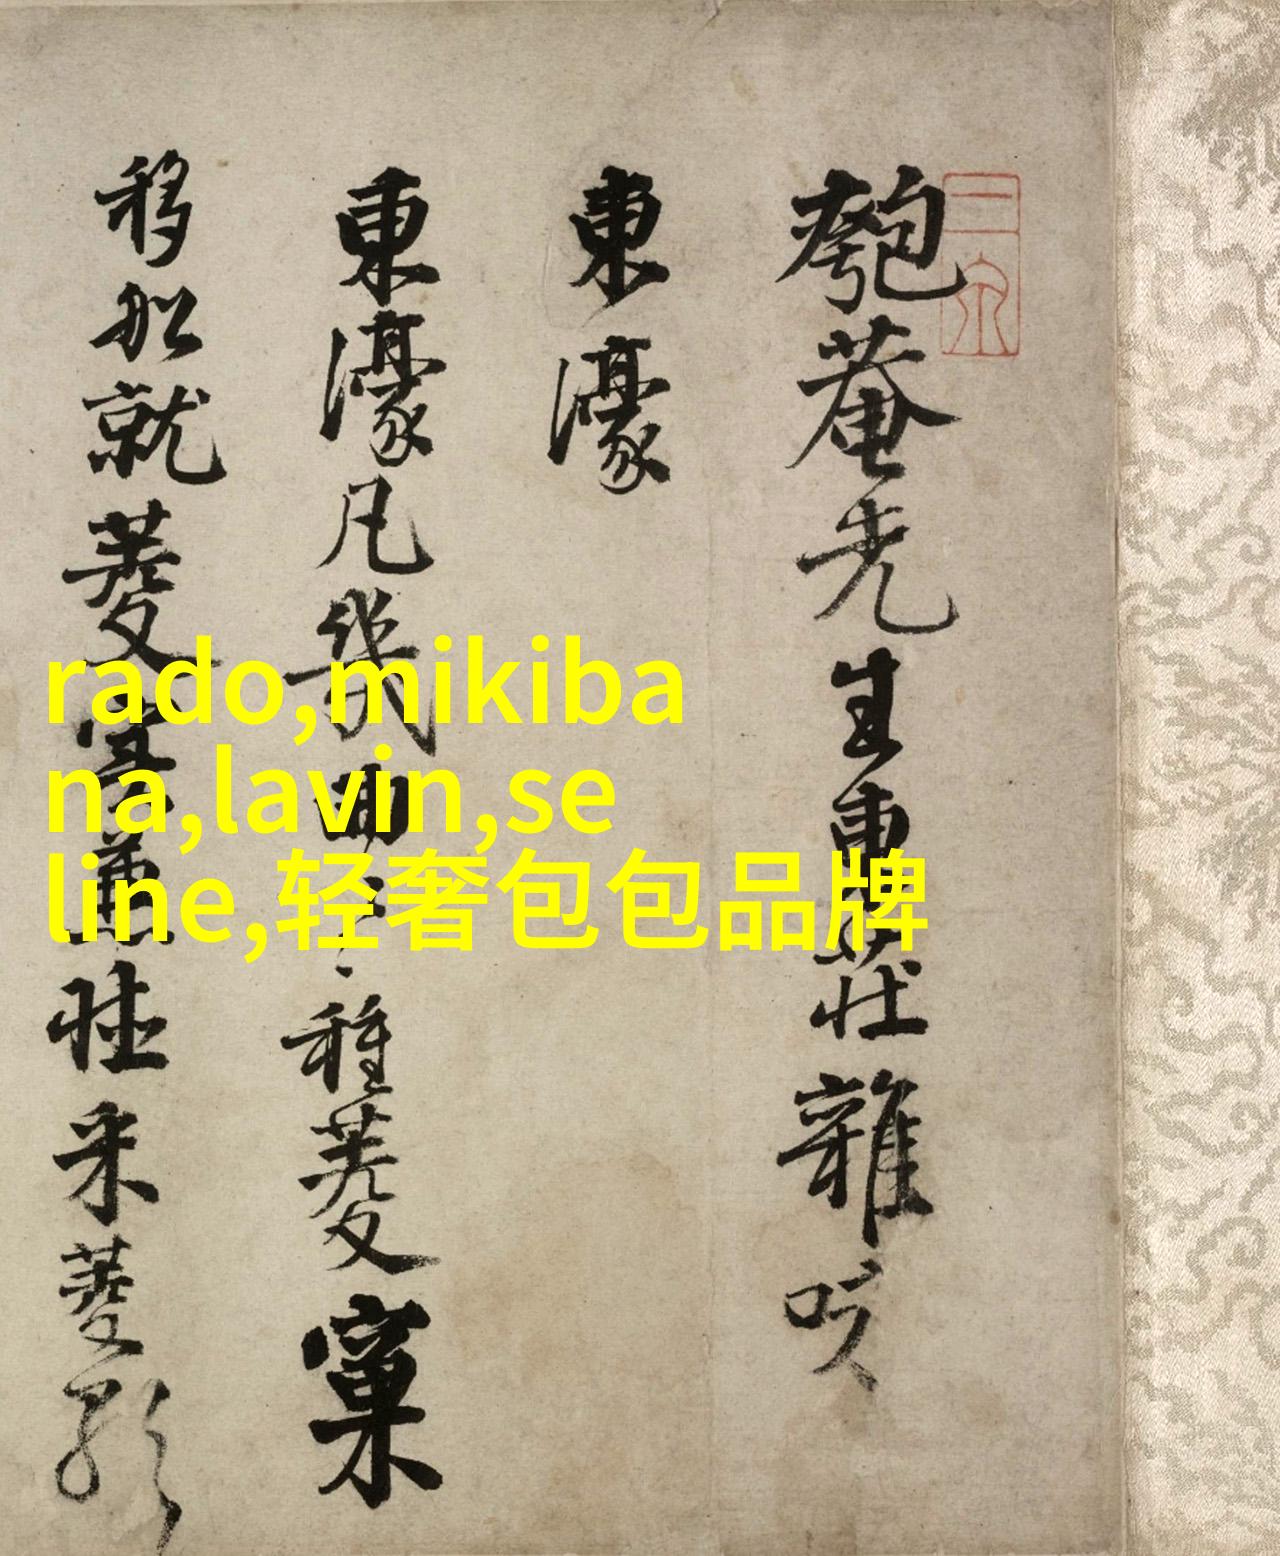 二泉
匏菴先生東莊雜咏
東濠
東濠凡幾曲々種菱窠
移船就菱采菱歌
rado,mikiba
na,lavin,se
line,轻奢包包品牌